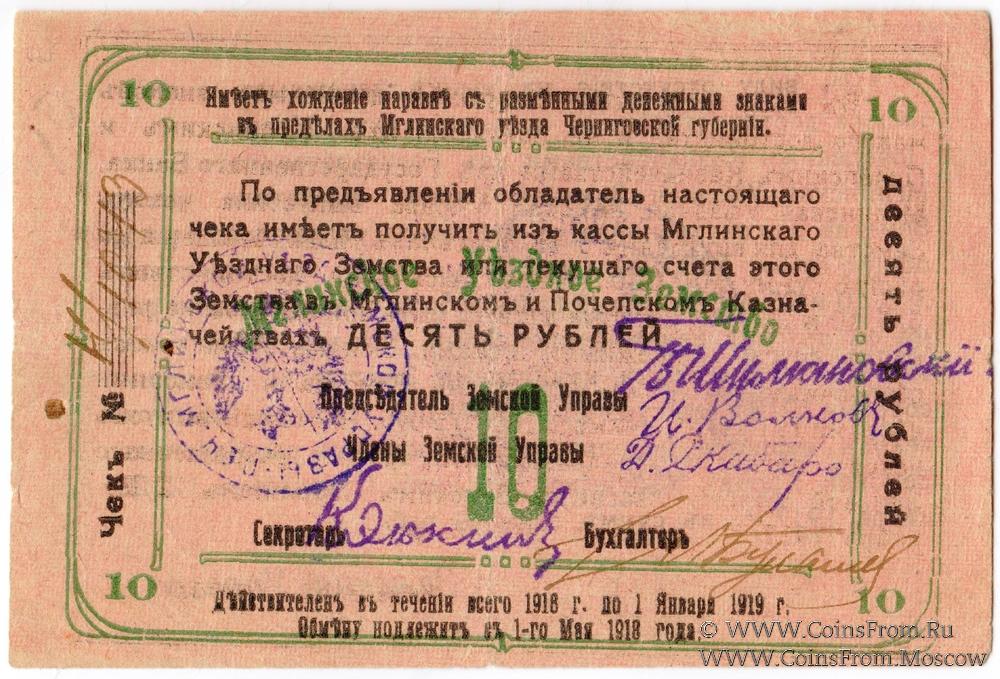 10 10
Имѣетъ хожденіе наравнѣ съ размѣнными денежными знаками
въ предѣлахъ Мглинскаго уѣзда Черниговской губерніи.
По предъявленіи обладатель настоящаго
чека имѣетъ получить изъ кассы Мглинскаго
Уѣзднаго Земства или текущаго счета этого
Земства въ Мглинскомъ и Почепскомъ Казна-
чействахъ ДЕСЯТЬ РУБЛЕЙ
Мглинское Уѣздное Земство
10
Предсѣдатель Земской Управы
И. Волковъ
Члены Земской Управы
Д. Скабаро
Секретарь
Бухгалтеръ
Чекъ №
десять рублей
10 10
Дѣйствителенъ въ теченіи всего 1918 г. до 1 Января 1919 г.
Обмѣну подлежитъ съ 1-го Мая 1918 года.
© WWW.CoinsFrom.Ru
WWW.CoinsFrom.Moscow